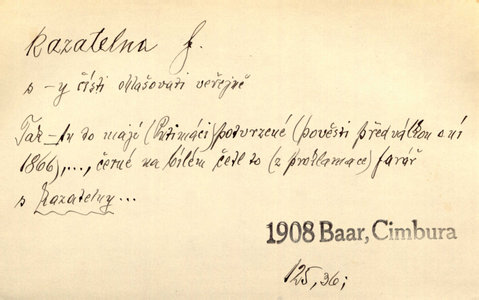 kazatelna f.
s -y čísti ohlašovati veřejně
Tak - tu to mají (Putimáci) potvrzené (pověsti před válkou o ní
1866),..., černé na bílém četl to (z proklamace) farář
s kazatelny...
1908 Baar, Cimbura
125, 36;